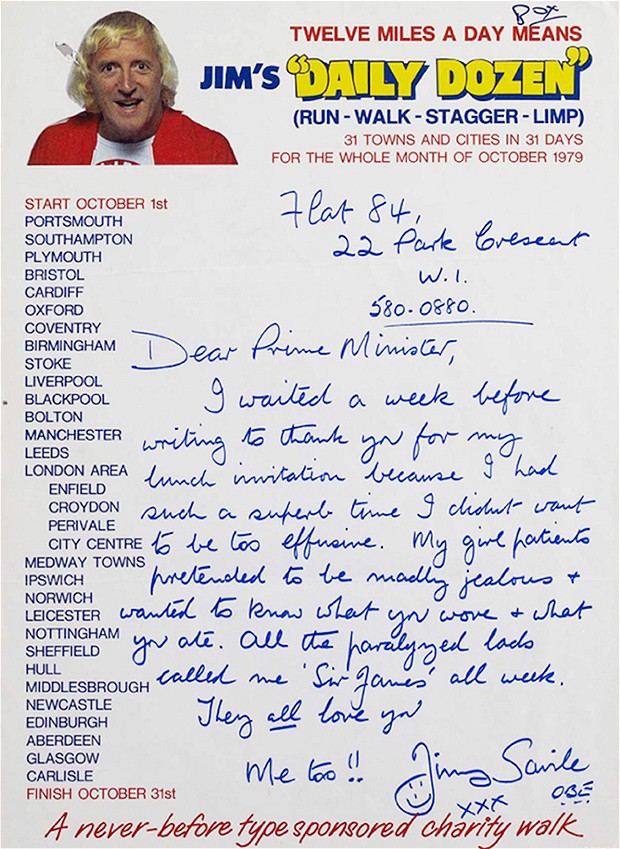 TWELVE MILES A DAY MEANS
JIM'S "DAILY DOZEN"
(RUN - WALK - STAGGER - LIMP)
31 TOWNS AND CITIES IN 31 DAYS
FOR THE WHOLE MONTH OF OCTOBER 1979
START OCTOBER 1st
PORTSMOUTH
SOUTHAMPTON
PLYMOUTH
BRISTOL
CARDIFF
OXFORD
COVENTRY
BIRMINGHAM
STOKE
LIVERPOOL
BLACKPOOL
BOLTON
MANCHESTER
LEEDS
LONDON AREA
ENFIELD
CROYDON
PERIVALE
CITY CENTRE
MEDWAY TOWNS
IPSWICH
NORWICH
LEICESTER
NOTTINGHAM
SHEFFIELD
HULL
MIDDLESBROUGH
NEWCASTLE
EDINBURGH
ABERDEEN
GLASGOW
CARLISLE
FINISH OCTOBER 31st
Flat 84,
22 Park Crescent
W.1.
580-0880.
Dear Prime Minister,
I waited a week before
writing to thank you for my
lunch invitation because I had
such a superb time I didnt want
to be too effusive. My girl patients
pretended to be madly jealous +
wanted to know what you wore + what
you ate. All the paralyzed lads
called me 'Sir James' all week.
They all love you
Me too!! Jimmy Savile
OBE
xxx
A never-before type sponsored charity walk